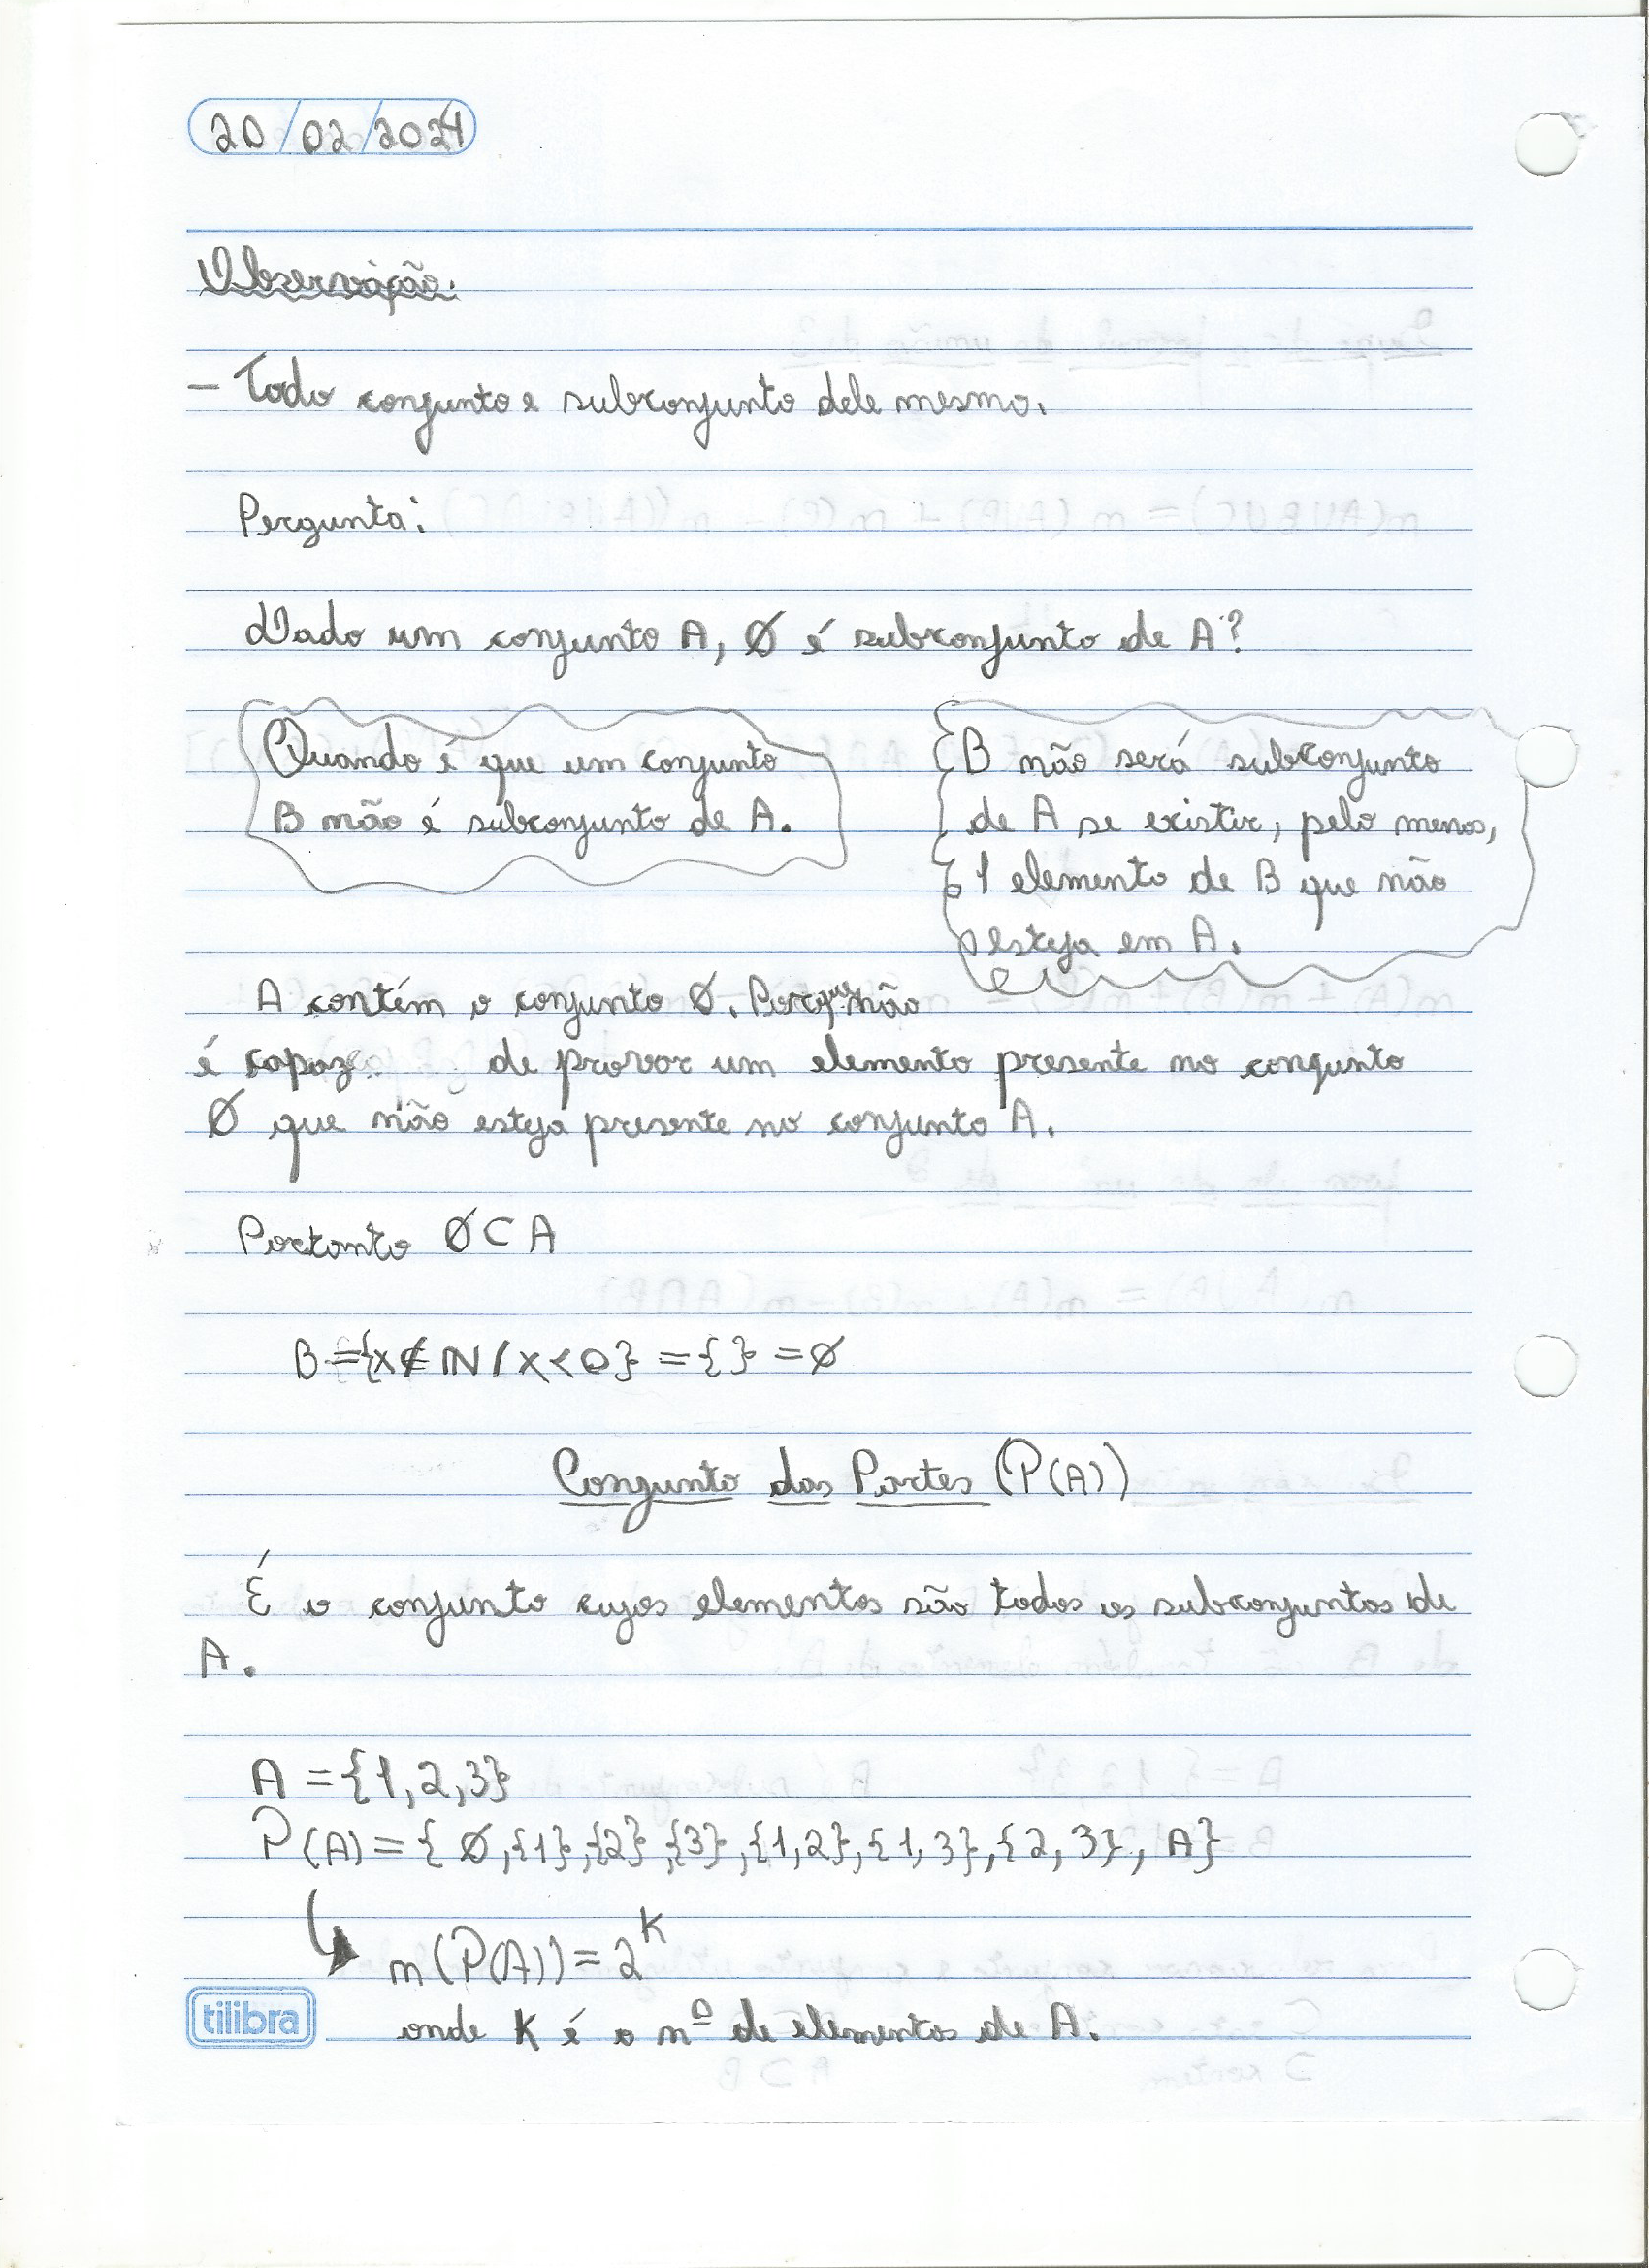 20/02/2024
Observação.
- Todo conjunto e subconjunto dele mesmo.
Pergunta:
Dado um conjunto A, Ø é subconjunto de A?
Quando é que um conjunto
B não é subconjunto de A.
B não será subconjunto
de A se existir, pelo menos,
1 elemento de B que não
esteja em A.
A contém o conjunto Ø. Porque não
é capaz de provar um elemento presente no conjunto
Ø que não esteja presente no conjunto A.
Portanto Ø⊂A
B={x∉ℕ/x<0}={}=Ø
Conjunto das Partes (P(A))
É o conjunto cujos elementos são todos os subconjuntos de
A.
A={1,2,3}
P(A)={Ø,{1},{2},{3},{1,2},{1,3},{2,3}, A}
n(P(A))=2^K
onde K é o nº de elementos de A.
tilibra